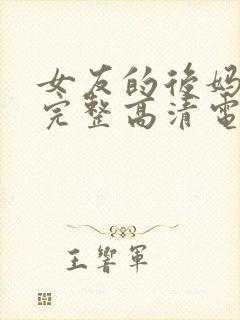 女友的後妈
完整高清電
王響軍